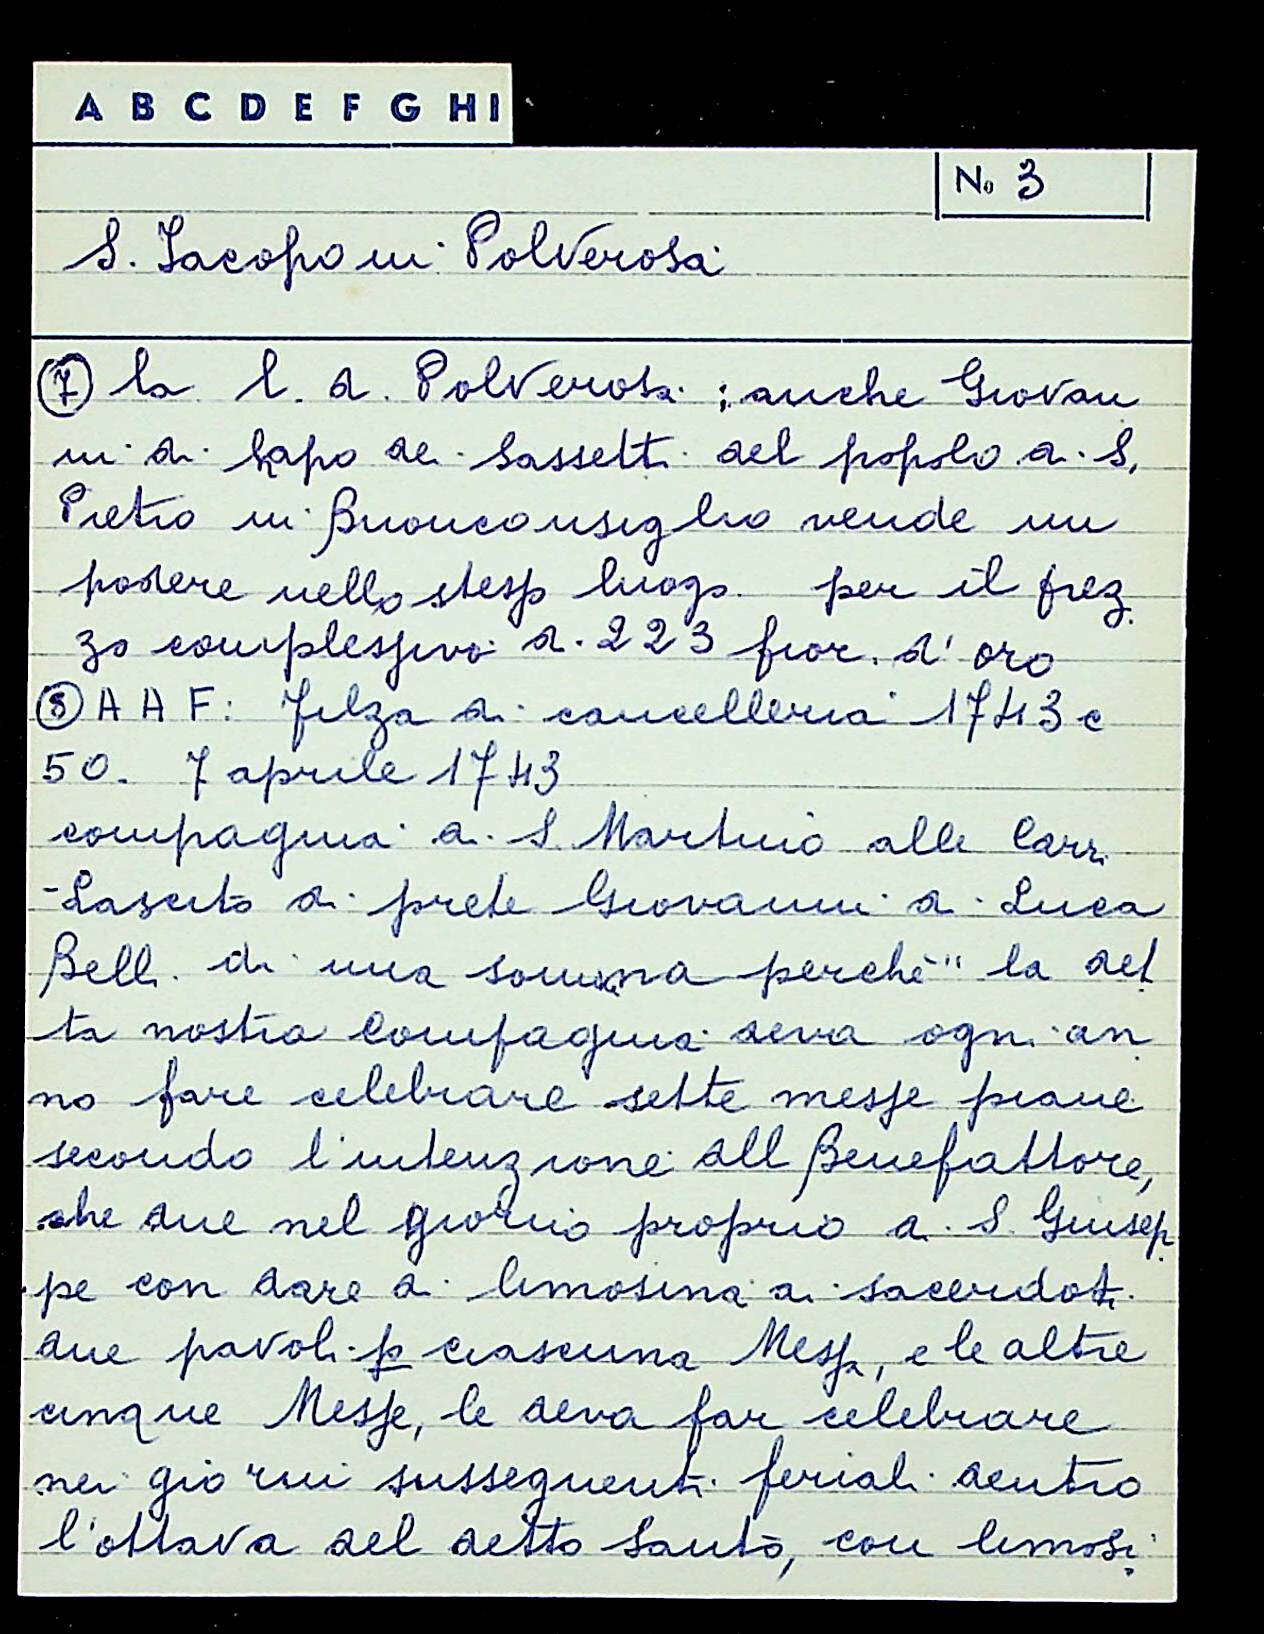 A B C D E F G H I
No 3
S. Jacopo in Polverosa
(7) la l. d. Polverosa ; anche Giovan
ni di Lapo dei Sassetti del popolo di S.
Pietro in Buonconsiglio vende un
podere nello stesso luogo per il prez
zo complessivo di 223 fior. d' oro
(8) A A F: Filza di cancelleria 1743 c
50. 7 aprile 1743
compagnia di S. Martino alle Carr.
- Lascito di prete Giovanni di Luca
Belli di una somma perchè " la det
ta nostra Compagnia deva ogni an
no fare celebrare sette messe piane
secondo l'intenzione all Benefattore,
che due nel giorno proprio di S. Giusep
pe con dare di limosina ai sacerdoti
due pavoli p ciascuna Messa, e le altre
cinque Messe, le deva far celebrare
nei giorni susseguenti feriali dentro
l'ottava del detto Santo, con limosi